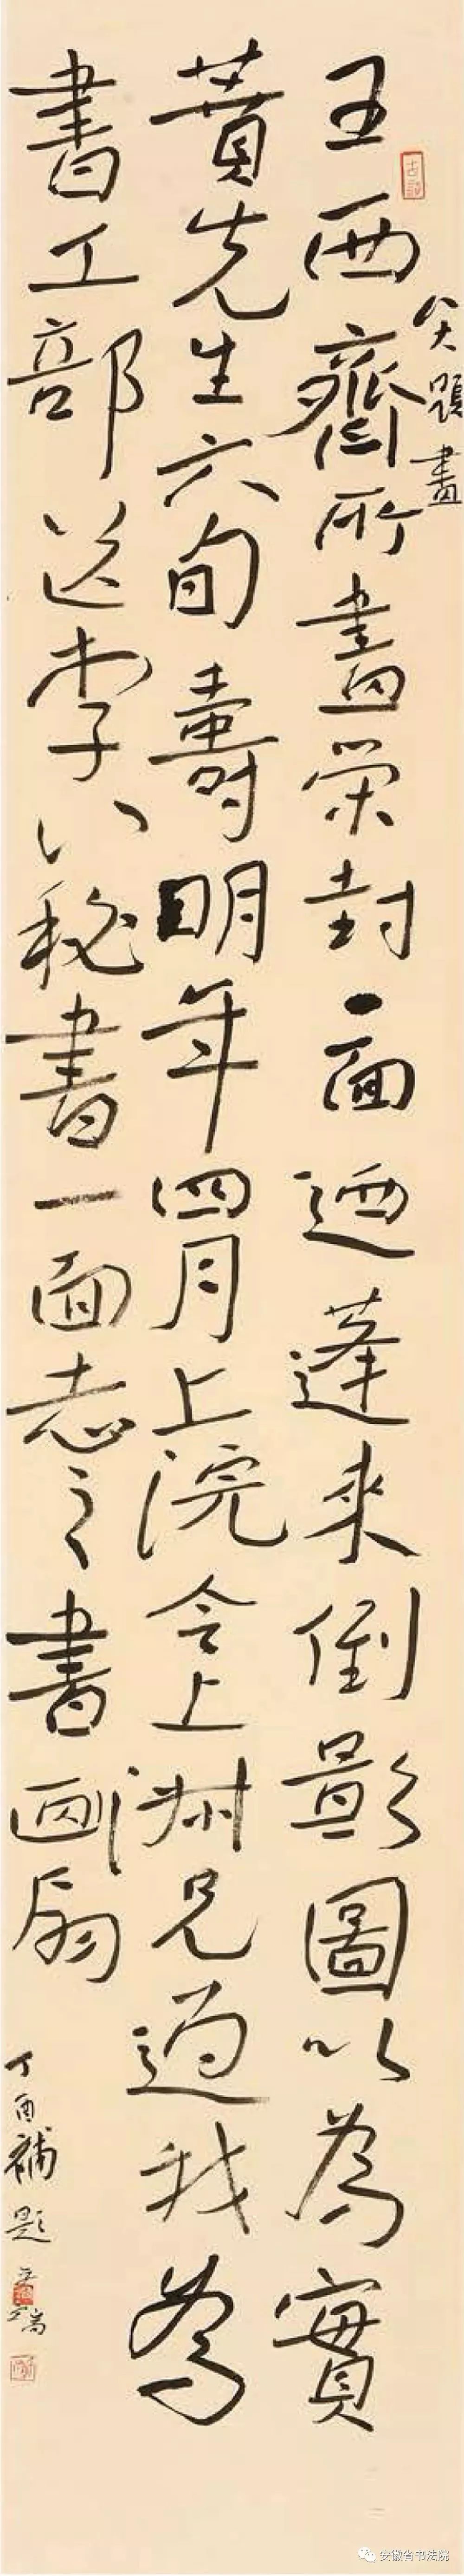 王西齋所畫策封一面迺蓬來倒影圖以為實
蕡先生六旬壽明年四月上浣令上渊兄過我為
書工部送李八秘書一面志之書画扇
笑題畫
丁酉補題
安徽省书法院